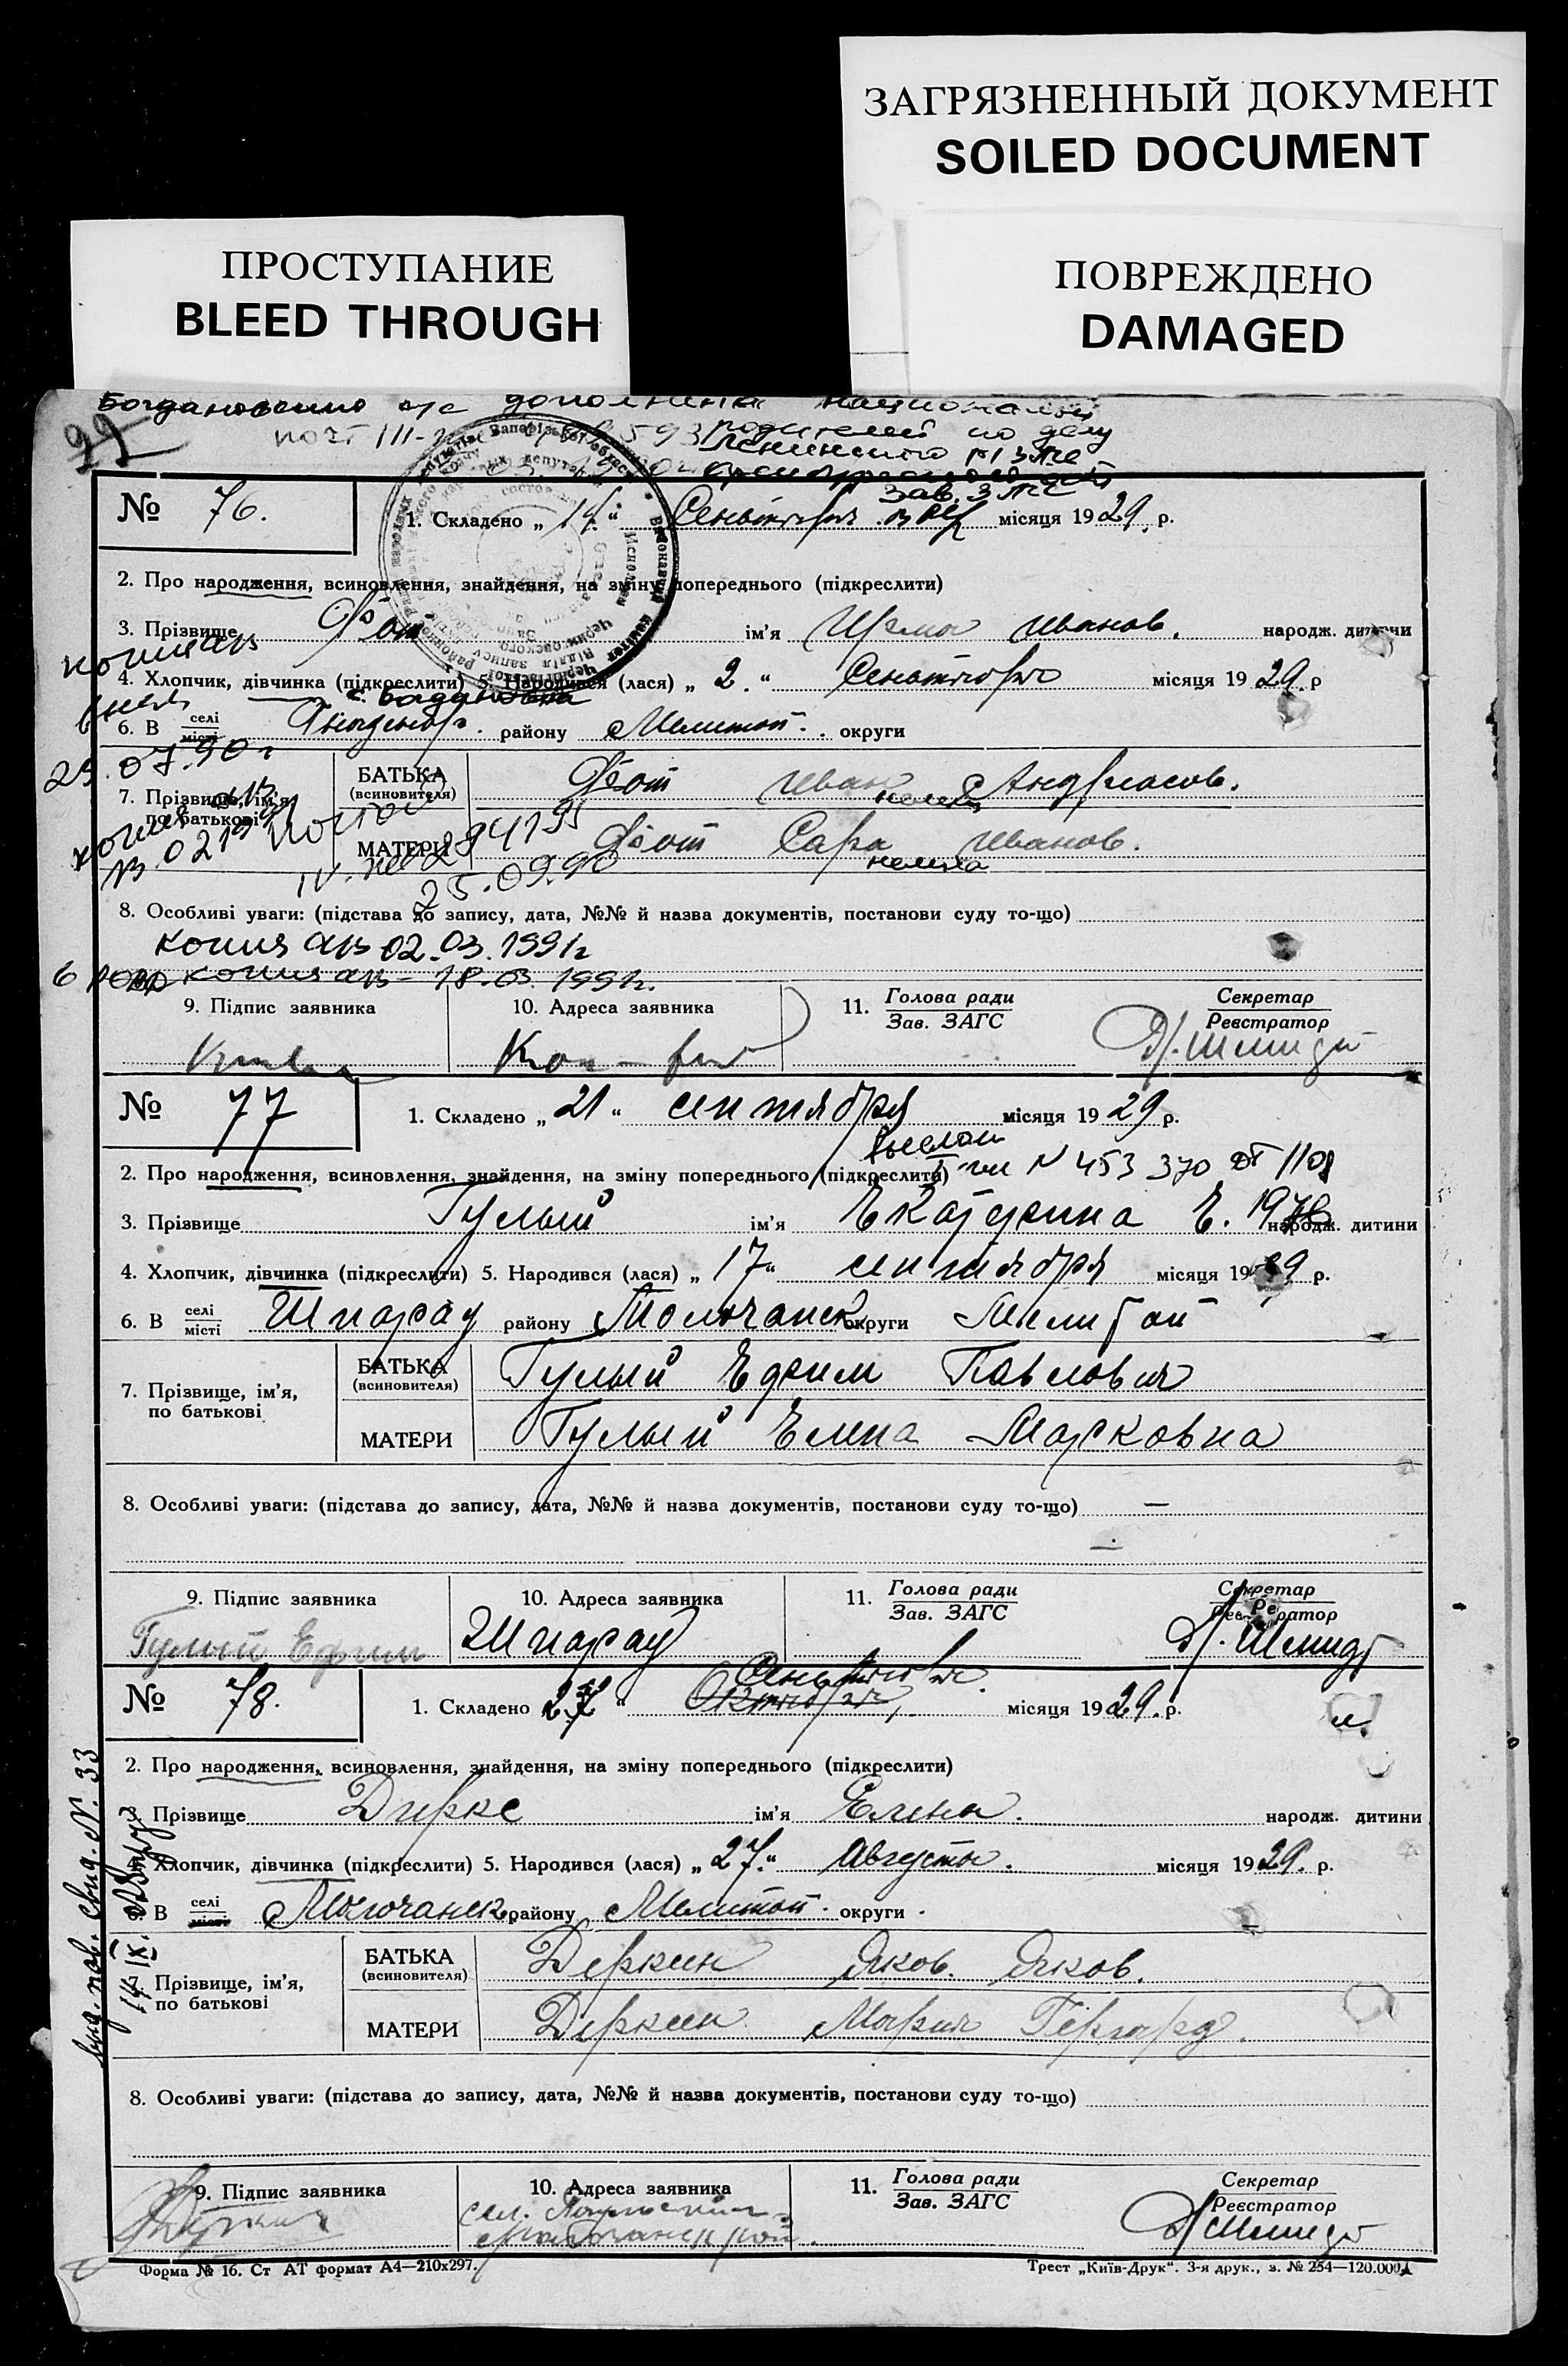 ЗАГРЯЗНЕННЫЙ ДОКУМЕНТ
SOILED DOCUMENT
ПРОСТУПАНИЕ
BLEED THROUGH
ПОВРЕЖДЕНО
DAMAGED
дополнена
родителей по делу
Зав.
№ 76.
1. Складено „ 14 “ Сентября місяця 1929 р.
2. Про народження, всиновлення, знайдення, на зміну попереднього (підкреслити)
3. Прізвище Фот ім'я Ирма Иванов. народж. дитини
4. Хлопчик, дівчинка (підкреслити) 5. Народився (лася) „ 2. “ Сентября місяця 19 29. р
с. Богдановка
6. В селі місті Гнаденф. району Мелитоп. округи
29.07.90г
7. Прізвище, ім'я, по батькові
БАТЬКА (всиновителя) Фот Иван Андреасов.
немец
МАТЕРИ Фот Сара Иванов.
немка
25.09.90
8. Особливі уваги: (підстава до запису, дата, №№ й назва документів, постанови суду то-що)
копия а/з 02.03.1991г
копия а/з - 18.03.1991г.
9. Підпис заявника
10. Адреса заявника
11. Голова ради Зав. ЗАГС
Секретар Реєстратор
Д. Шмидт
№ 77
1. Складено „ 21 “ сентября місяця 19 29 р.
выслан
2. Про народження, всиновлення, знайдення, на зміну попереднього (підкреслити) N 453370 от 1108
3. Прізвище Гулый ім'я Екатерина Е. народж. дитини
4. Хлопчик, дівчинка (підкреслити) 5. Народився (лася) „ 17 “ сентября місяця 1929 р.
6. В селі місті Шпарау району Молочанск округи Мелитоп
7. Прізвище, ім'я, по батькові
БАТЬКА (всиновителя) Гулый Ефим Павлович
МАТЕРИ Гулый Елена Марковна
8. Особливі уваги: (підстава до запису, дата, №№ й назва документів, постанови суду то-що) —
9. Підпис заявника
10. Адреса заявника
11. Голова ради Зав. ЗАГС
Секретар Реєстратор
Гулый Ефим
Шпарау
Д. Шмидт
Сентября.
№ 78.
1. Складено 27 “ Октября, місяця 1929. р.
2. Про народження, всиновлення, знайдення, на зміну попереднього (підкреслити)
3. Прізвище Диркс ім'я Елена. народж. дитини
4. Хлопчик, дівчинка (підкреслити) 5. Народився (лася) „ 27. “ Августа. місяця 1929. р.
6. В селі місті Молочанск. району Мелитоп. округи.
7. Прізвище, ім'я, по батькові
БАТЬКА (всиновителя) Дирксен Яков. Яков.
МАТЕРИ Дирксен Мария Гергард.
8. Особливі уваги: (підстава до запису, дата, №№ й назва документів, постанови суду то-що)
9. Підпис заявника
10. Адреса заявника
11. Голова ради Зав. ЗАГС
Секретар Реєстратор
Д Шмидт
Форма № 16. Ст АТ формат А4—210x297.
Трест „Київ-Друк“. 3-я друк., з. № 254—120.000